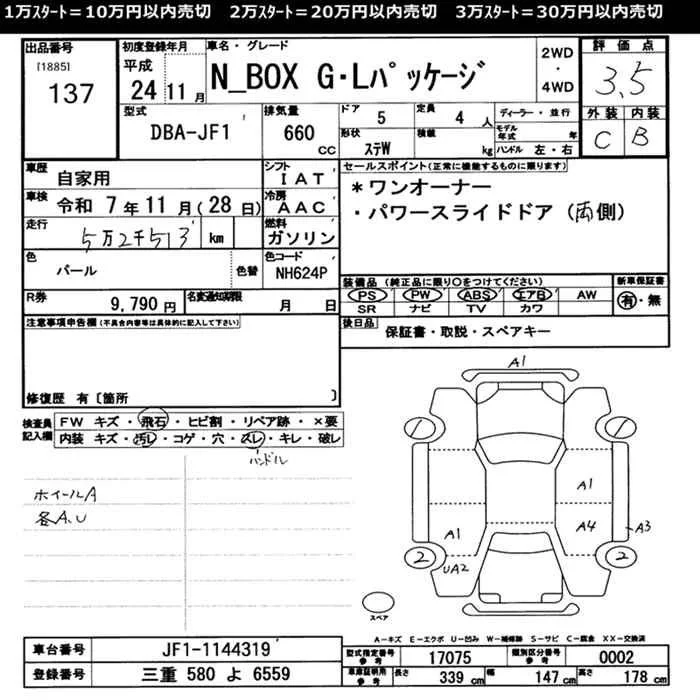 1万スタート＝10万円以内売切　2万スタート＝20万円以内売切　3万スタート＝30万円以内売切
出品番号
[1885]
137
初度登録年月
平成
24 11 月
車名・グレード
N_BOX G・Lパッケージ
2WD
・
4WD
評価点
3,5
外装 内装
C B
型式
DBA-JF1
排気量
660 CC
ドア
5
形状
ステW
定員
4 人
積載
kg
ディーラー・並行
モデル年式 年
ハンドル 左・右
車歴
自家用
車検
令和 7 年 11 月 (28 日)
走行
5万2千513 km
色
パール
色替
シフト
IAT
冷房
AAC
燃料
ガソリン
色コード
NH624P
R券
9,790 円
名変通知期限
月 日
セールスポイント(正常に機能するものに限ります)
＊ワンオーナー
・パワースライドドア（両側）
装備品 (純正品に限り○をつけてください)
新車保証書
PS PW ABS エアB AW
SR ナビ TV カワ
有・無
注意事項申告欄 (不具合内容等は具体的に記入して下さい)
後日品
保証書・取説・スペアキー
修復歴 有〔箇所 〕
検査員
記入欄
FW キズ・飛石・ヒビ割・リペア跡・×要
内装 キズ・汚レ・コゲ・穴・スレ・キレ・破レ
ハンドル
ホイールA
各A、U
A1
1
1
A1
A1
A4
A3
2
UA2
2
スペア
A－キズ E－エクボ U－凹み W－補修跡 S－サビ C－腐食 XX－交換済
車台番号
JF1-1144319
登録番号
三重 580 よ 6559
型式指定番号
参考
17075
類別区分番号
参考
0002
車庫証明用
参考
長さ
339 cm
幅
147 cm
高さ
178 cm